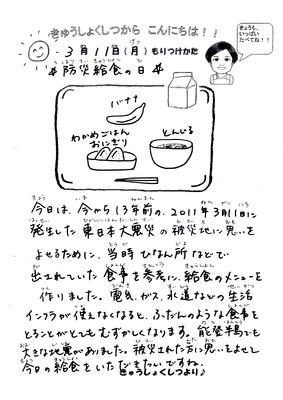 きゅうしょくしつから こんにちは！！
きょうも、
いっぱい
たべてね！！
3月11日(月) もりつけかた
防災給食の日
バナナ
わかめごはん
おにぎり
とんじる
今日は、今から13年前の、2011年3月11日に
発生した東日本大震災の被災地に思いを
よせるために、当時ひなん所などで
出されていた食事を参考に、給食のメニューを
作りました。電気、ガス、水道などの生活
インフラが使えなくなると、ふだんのような食事を
とることがとてもむずかしくなります。能登半島でも
大きな地震がありました。被災された方に思いをよせて
今日の給食をいただきたいですね。
きゅうしょくしつより♪